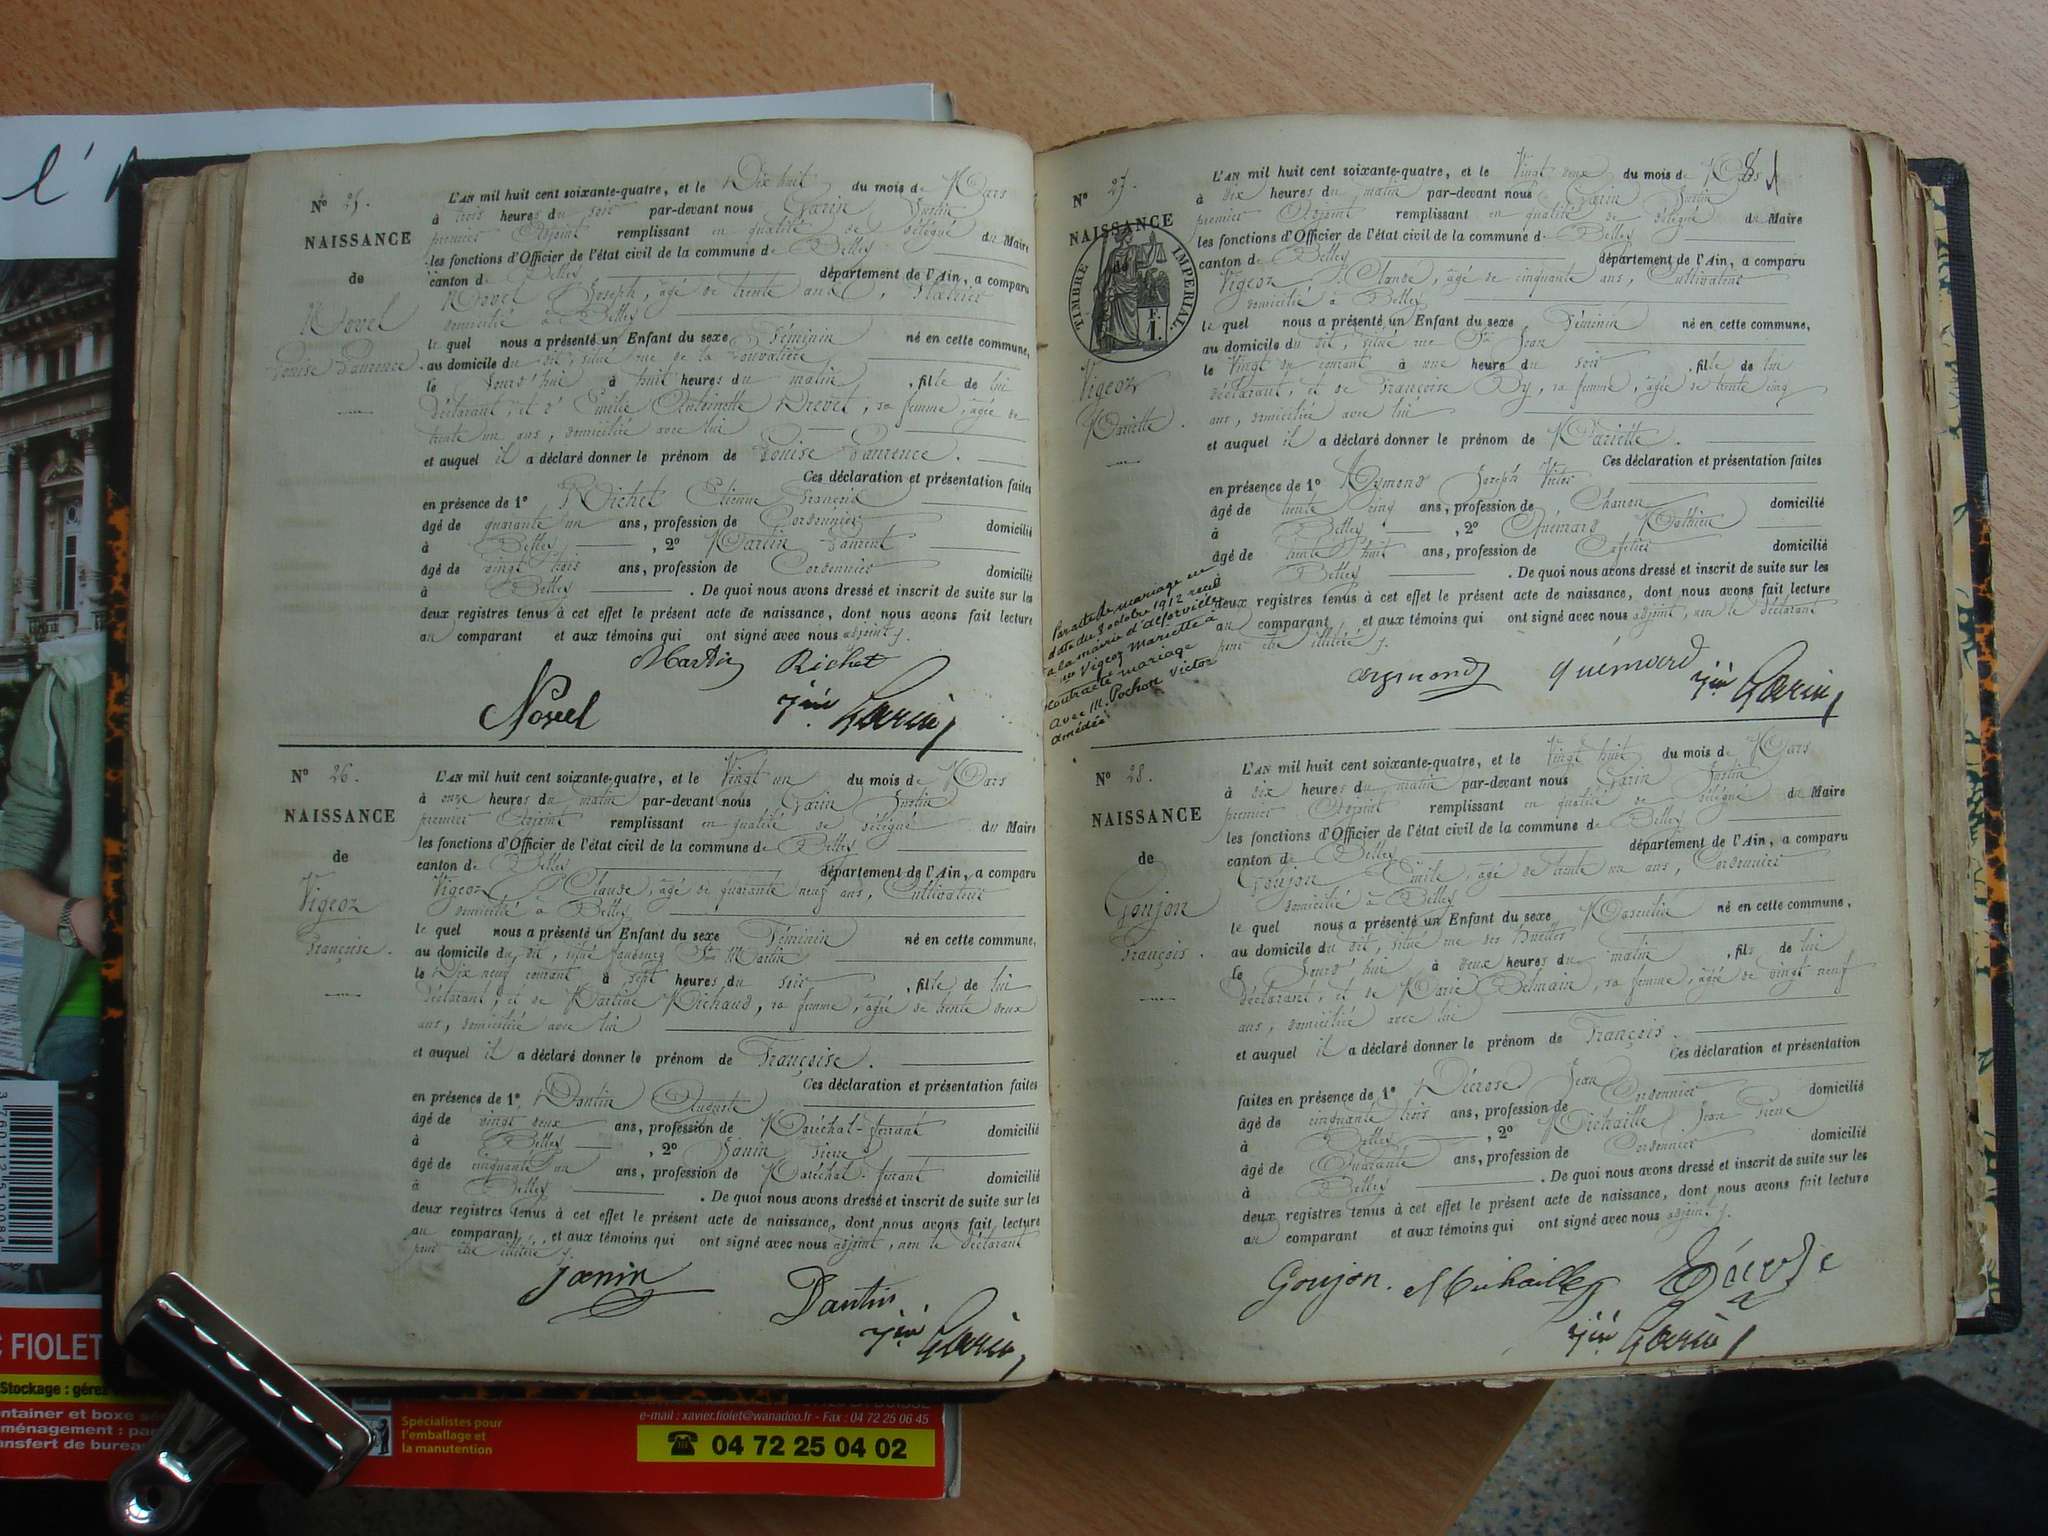 l'
N° 25.
NAISSANCE
de
Novel
Louise Laurence.
L'AN mil huit cent soixante-quatre, et le Dix huit du mois de Mars
à trois heures du soir par-devant nous Garin Justin
premier Adjoint remplissant en qualité de délégué du Maire
les fonctions d'Officier de l'état civil de la commune de Belley
canton de Belley département de l'Ain, a comparu
Novel Joseph, âgé de trente ans,
domicilié à Belley
le quel nous a présenté un Enfant du sexe Féminin né en cette commune,
au domicile du dit, situé rue de la
le jourd'hui à huit heures du matin, fille de lui
déclarant, et d'Emélie Antoinette Drevet, sa femme, âgée de
trente un ans, domiciliée avec lui
et auquel il a déclaré donner le prénom de Louise Laurence.
Ces déclaration et présentation faites
en présence de 1° Richet Etienne François
âgé de quarante un ans, profession de Cordonnier domicilié
à Belley, 2° Martin Laurent
âgé de vingt trois ans, profession de Cordonnier domicilié
à Belley. De quoi nous avons dressé et inscrit de suite sur les
deux registres tenus à cet effet le présent acte de naissance, dont nous avons fait lecture
au comparant et aux témoins qui ont signé avec nous adjoint.
Martin Richet
Novel Garin
N° 26.
NAISSANCE
de
Vigeoz
Françoise.
L'AN mil huit cent soixante-quatre, et le Vingt un du mois de Mars
à onze heures du matin par-devant nous Garin Justin
premier Adjoint remplissant en qualité de délégué du Maire
les fonctions d'Officier de l'état civil de la commune de Belley
canton de Belley département de l'Ain, a comparu
Vigeoz Claude, âgé de quarante neuf ans, Cultivateur
domicilié à Belley
le quel nous a présenté un Enfant du sexe Féminin né en cette commune,
au domicile du dit, situé faubourg St Martin
le Dix neuf courant à sept heures du soir, fille de lui
déclarant, et de Martine Michaud, sa femme, âgée de trente deux
ans, domiciliée avec lui
et auquel il a déclaré donner le prénom de Françoise.
Ces déclaration et présentation faites
en présence de 1° Dantin Auguste
âgé de vingt deux ans, profession de Maréchal-ferrant domicilié
à Belley, 2° Janin Pierre
âgé de cinquante un ans, profession de Maréchal-ferrant domicilié
à Belley. De quoi nous avons dressé et inscrit de suite sur les
deux registres tenus à cet effet le présent acte de naissance, dont nous avons fait lecture
au comparant, et aux témoins qui ont signé avec nous adjoint, non le déclarant
pour être illitéré.
Janin
Dantin
Garin
N° 27.
NAISSANCE
de
TIMBRE IMPERIAL
F.
1.
Vigeoz
Mariette.
L'AN mil huit cent soixante-quatre, et le Vingt deux du mois de Mars
à dix heures du matin par-devant nous Garin Justin
premier Adjoint remplissant en qualité de délégué du Maire
les fonctions d'Officier de l'état civil de la commune de Belley
canton de Belley département de l'Ain, a comparu
Vigeoz Claude, âgé de cinquante ans, Cultivateur
domicilié à Belley
le quel nous a présenté un Enfant du sexe Féminin né en cette commune,
au domicile du dit, situé rue St Jean
le Vingt du courant à une heure du soir, fille de lui
déclarant, et de Françoise Dy, sa femme, âgée de trente cinq
ans, domiciliée avec lui
et auquel il a déclaré donner le prénom de Mariette.
Ces déclaration et présentation faites
en présence de 1° Aymond Joseph Victor
âgé de trente cinq ans, profession de domicilié
à Belley, 2° Quémard Mathieu
âgé de trente huit ans, profession de Cafetier domicilié
à Belley. De quoi nous avons dressé et inscrit de suite sur les
deux registres tenus à cet effet le présent acte de naissance, dont nous avons fait lecture
au comparant, et aux témoins qui ont signé avec nous adjoint, non le déclarant
pour être illitéré.
Par acte de mariage en
date du 8 octobre 1912 reçu
à la mairie d'Alfortville
Vigeoz Mariette a
contracté mariage
avec M. Pochon Victor
Amédée
Quémard
Garin
N° 28.
NAISSANCE
de
Goujon
François.
L'AN mil huit cent soixante-quatre, et le Vingt huit du mois de Mars
à dix heures du matin par-devant nous Garin Justin
premier Adjoint remplissant en qualité de délégué du Maire
les fonctions d'Officier de l'état civil de la commune de Belley
canton de Belley département de l'Ain, a comparu
Goujon Emile, âgé de trente un ans, Cordonnier
domicilié à Belley
le quel nous a présenté un Enfant du sexe Masculin né en cette commune,
au domicile du dit, situé rue des
le jourd'hui à deux heures du matin, fils de lui
déclarant, et de Marie Belmain, sa femme, âgée de vingt neuf
ans, domiciliée avec lui
et auquel il a déclaré donner le prénom de François.
Ces déclaration et présentation
faites en présence de 1° Décrose Jean
âgé de cinquante trois ans, profession de Cordonnier domicilié
à Belley, 2° Michaille Jean Pierre
âgé de Quarante ans, profession de Cordonnier domicilié
à Belley. De quoi nous avons dressé et inscrit de suite sur les
deux registres tenus à cet effet le présent acte de naissance, dont nous avons fait lecture
au comparant et aux témoins qui ont signé avec nous adjoint.
Goujon. Michaille Décrose
Garin
C FIOLET
Stockage : gérez
ontainer et boxe
ménagement :
ansfert de bureau
Spécialistes pour
l'emballage et
la manutention
e-mail : xavier.fiolet@wanadoo.fr - Fax : 04 72 25 06 45
☎ 04 72 25 04 02